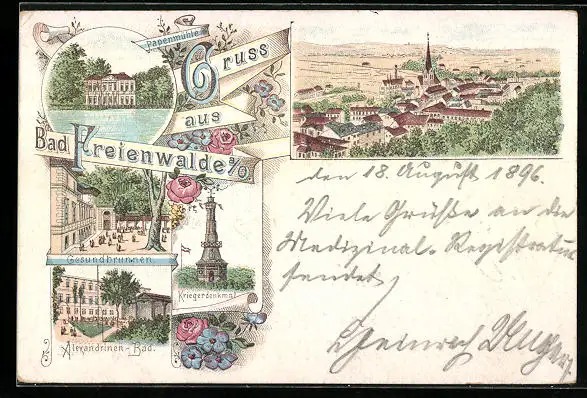 Papenmühle
Gruss
aus
Bad Freienwalde a/O
Gesundbrunnen.
Kriegerdenkmal
Alexandrinen-Bad.
den 18. August 1896.
Viele Grüße an die
Medizinal-Registratur
sendet
Heinrich